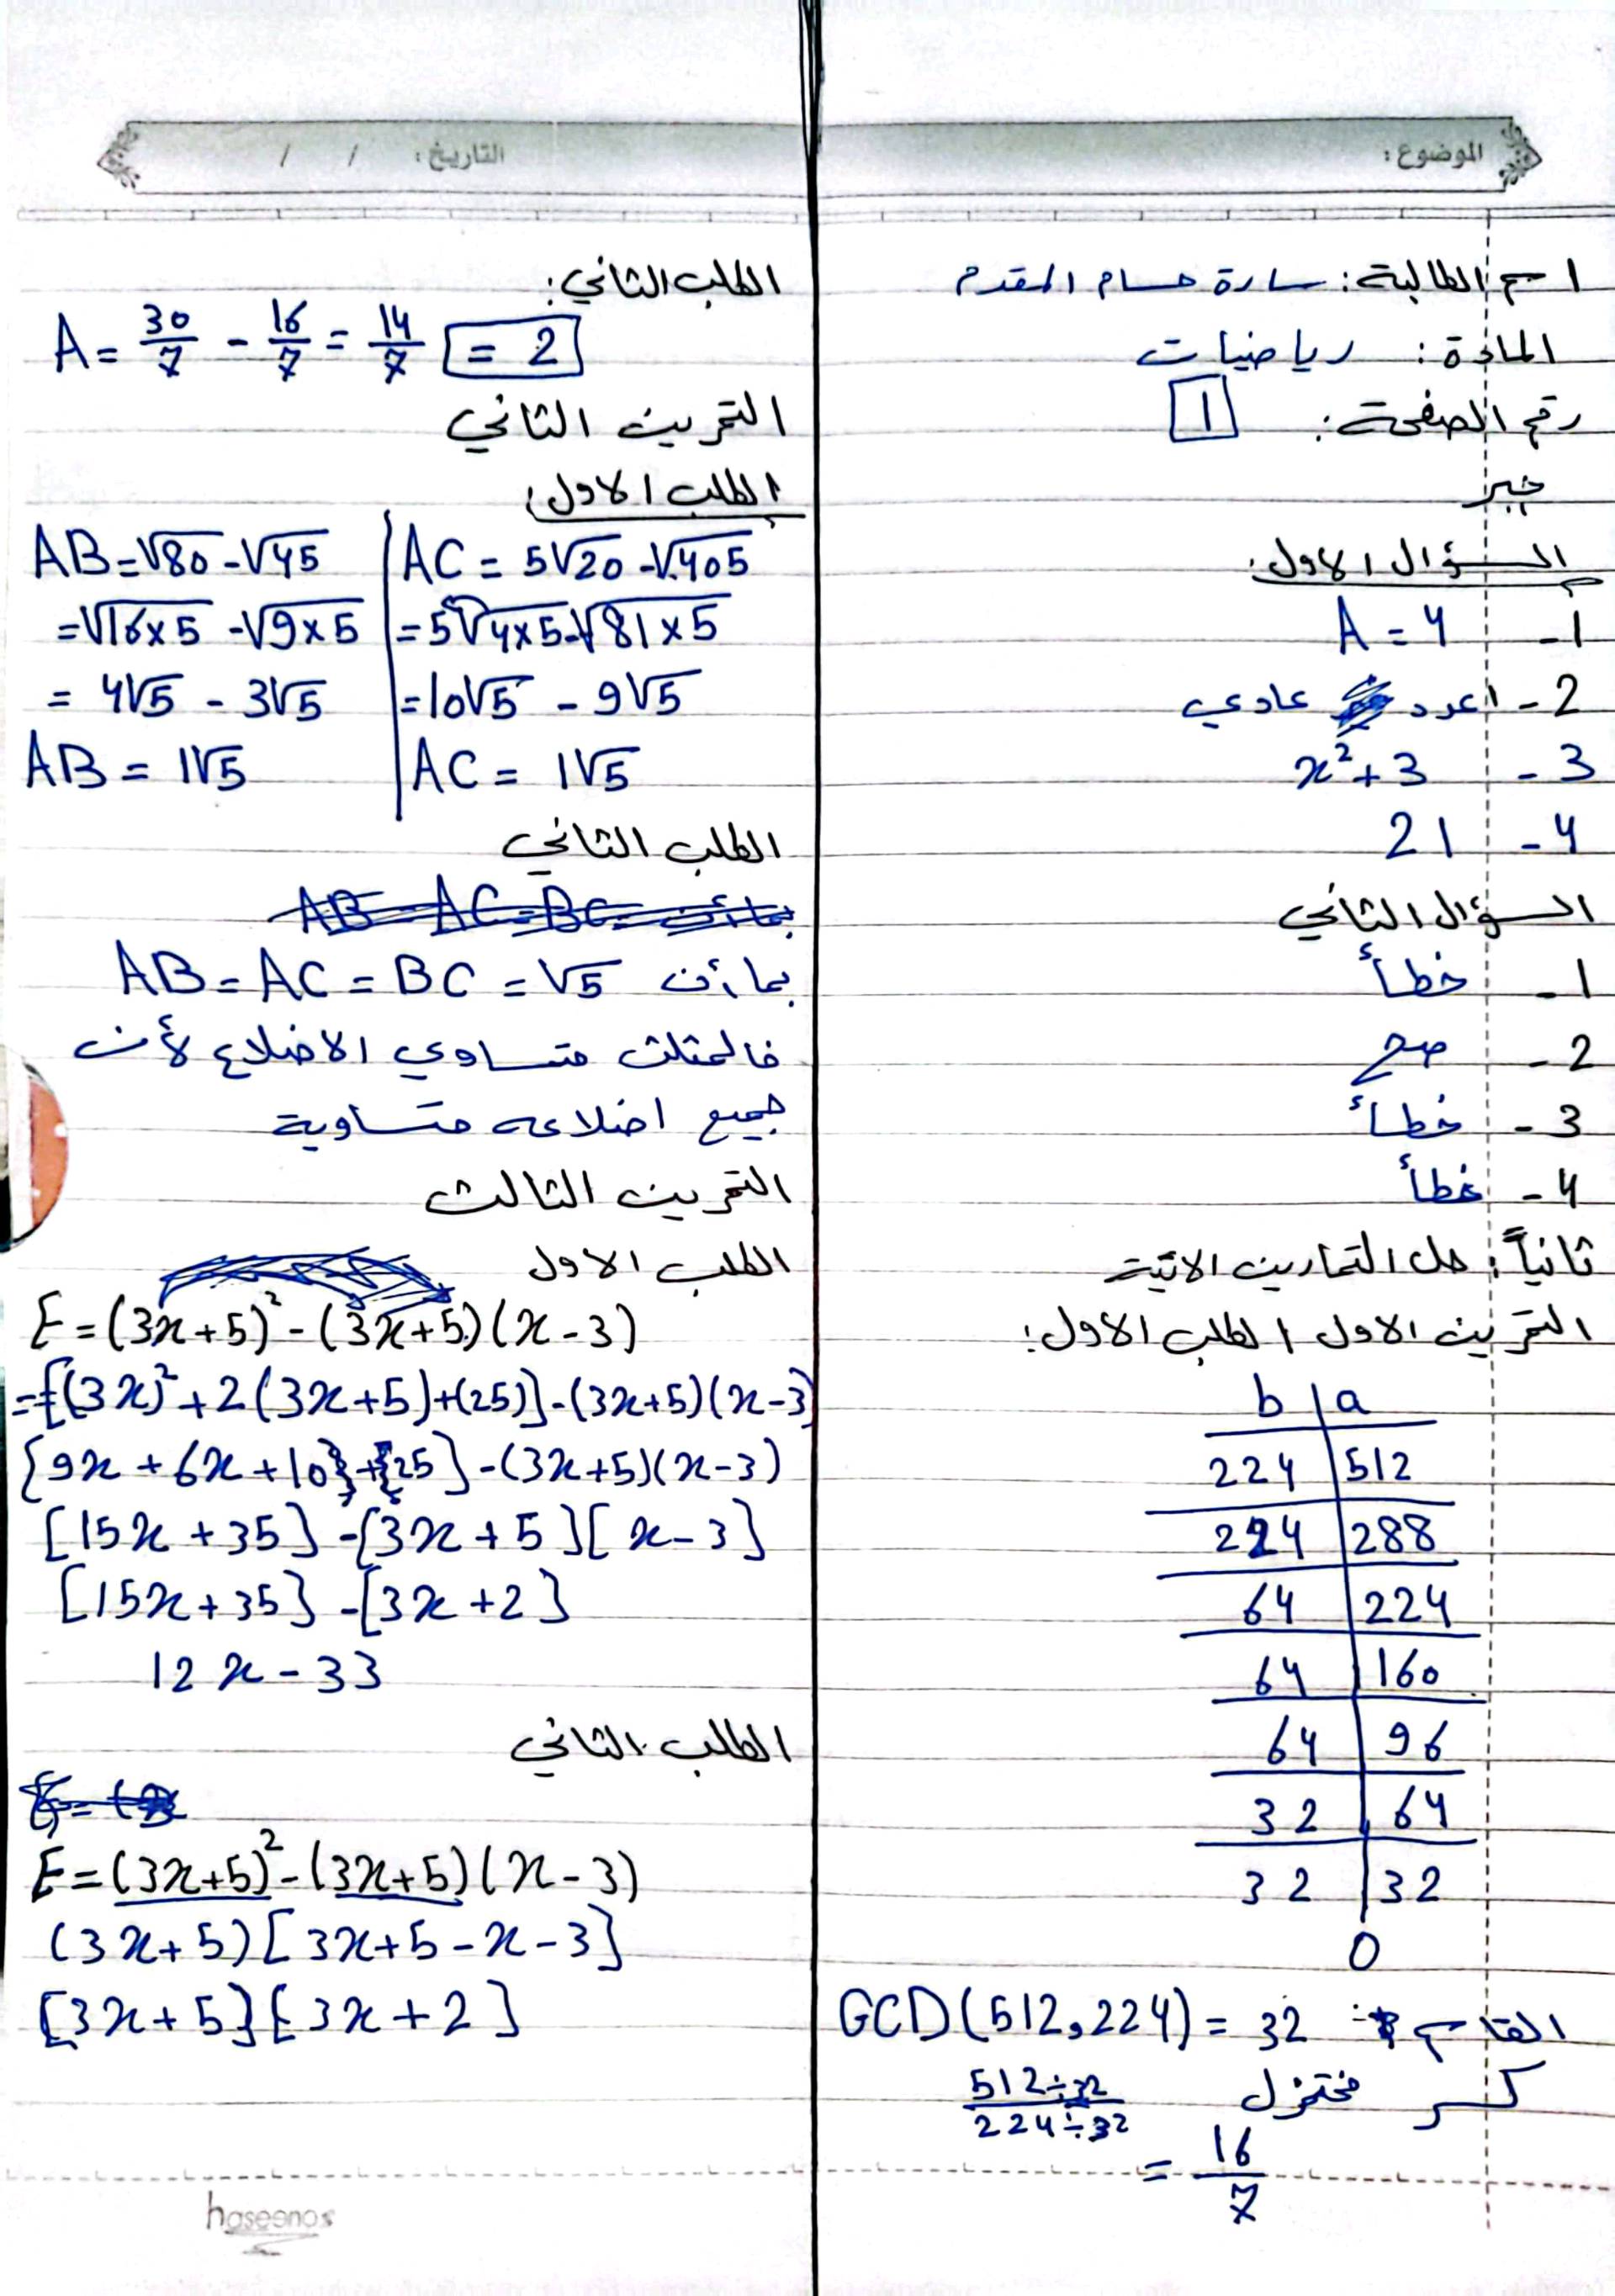 الموضوع:
اسم الطالبة: سارة حسام المقدم
المادة: رياضيات
رقم الصفحة: 1
جبر
السؤال الاول:
1- A = 4
2- اعدد عادي
3- x² + 3
4- 21
السؤال الثاني
1- خطأ
2- صح
3- خطأ
4- غطأ
ثانياً: حل التمارين الاتية
التمرين الاول الطلب الاول:
b | a
224 | 512
224 | 288
64 | 224
64 | 160
64 | 96
32 | 64
32 | 32
0
القاسم: GCD(512,224) = 32
كسر مختزل 512÷32 / 224÷32
= 16/7
التاريخ: / /
الطلب الثاني:
A = 30/7 - 16/7 = 14/7 = 2
التمرين الثاني
الطلب الاول:
AB = √80 - √45 | AC = 5√20 - √405
= √16×5 - √9×5 | = 5√4×5 - √81×5
= 4√5 - 3√5 | = 10√5 - 9√5
AB = 1√5 | AC = 1√5
الطلب الثاني
بما أن AB = AC = BC =
بما أن AB = AC = BC = √5
فالمثلث متساوي الاضلاع لأن
جميع اضلاعه متساوية
التمرين الثالث
الطلب الاول
E = (3x+5)² - (3x+5)(x-3)
= [(3x)² + 2(3x+5)+(25)] - (3x+5)(x-3)
[9x + 6x + 10] + [25] - (3x+5)(x-3)
[15x + 35] - [3x + 5][x - 3]
[15x + 35] - [3x + 2]
12x - 33
الطلب الثاني
E = (3x+5)² - (3x+5)(x-3)
(3x+5)[3x+5-x-3]
[3x+5][3x+2]
haseenos